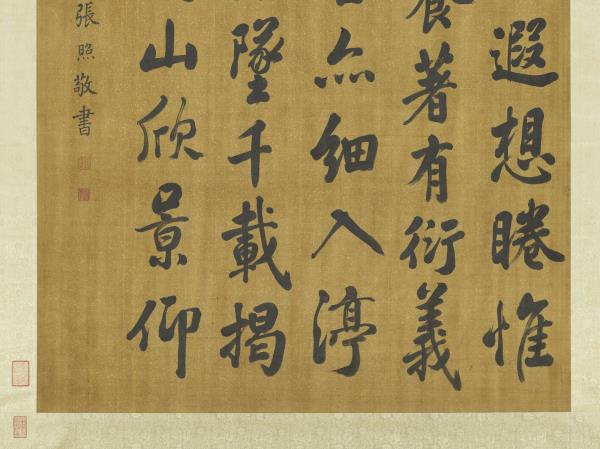 遐想睠惟
養著有衍義
亦細入渟
墜千載揭
山欣景仰
張照敬書